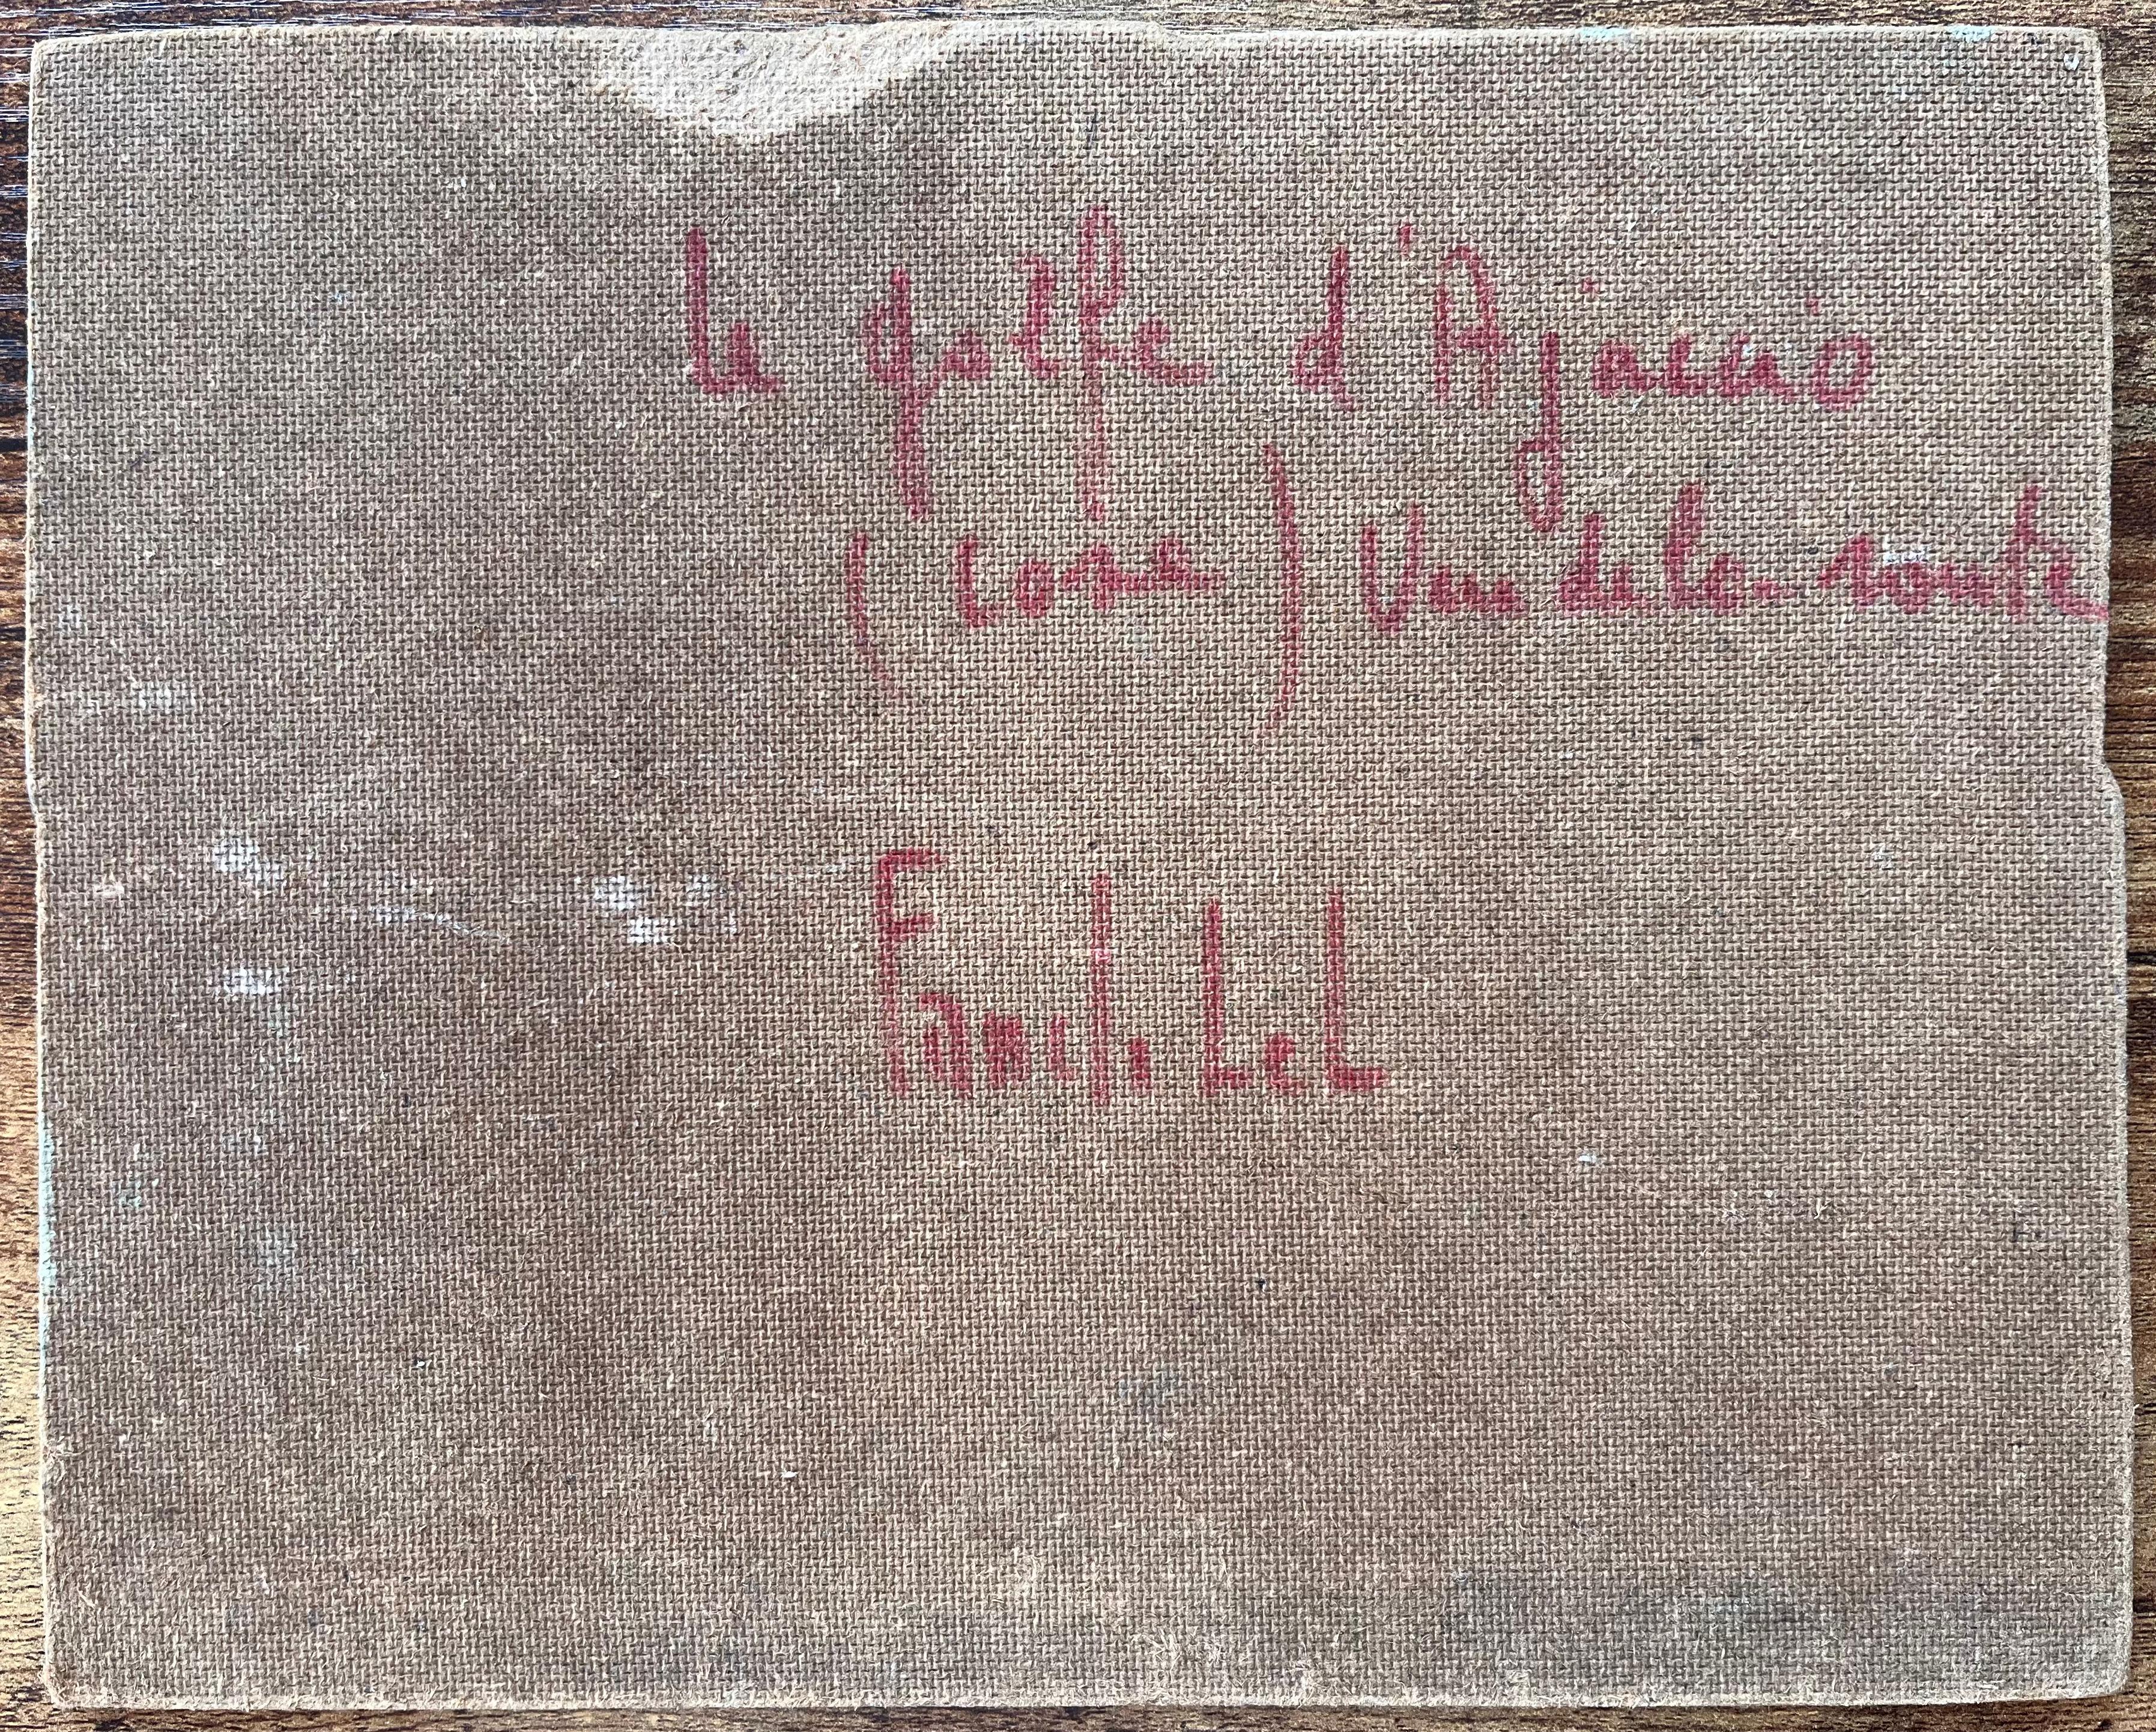 le golfe d'Ajaccio
(Corse) Vu de la route
Fanch Lel